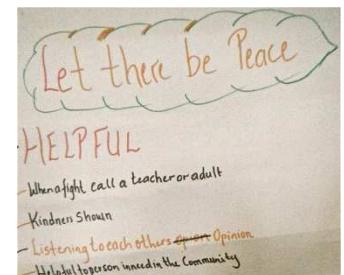 Let there be Peace
HELPFUL
- When a fight call a teacher or adult
- Kindness Shown
- Listening to each others Opinion
- Helpful to person in need in the Community